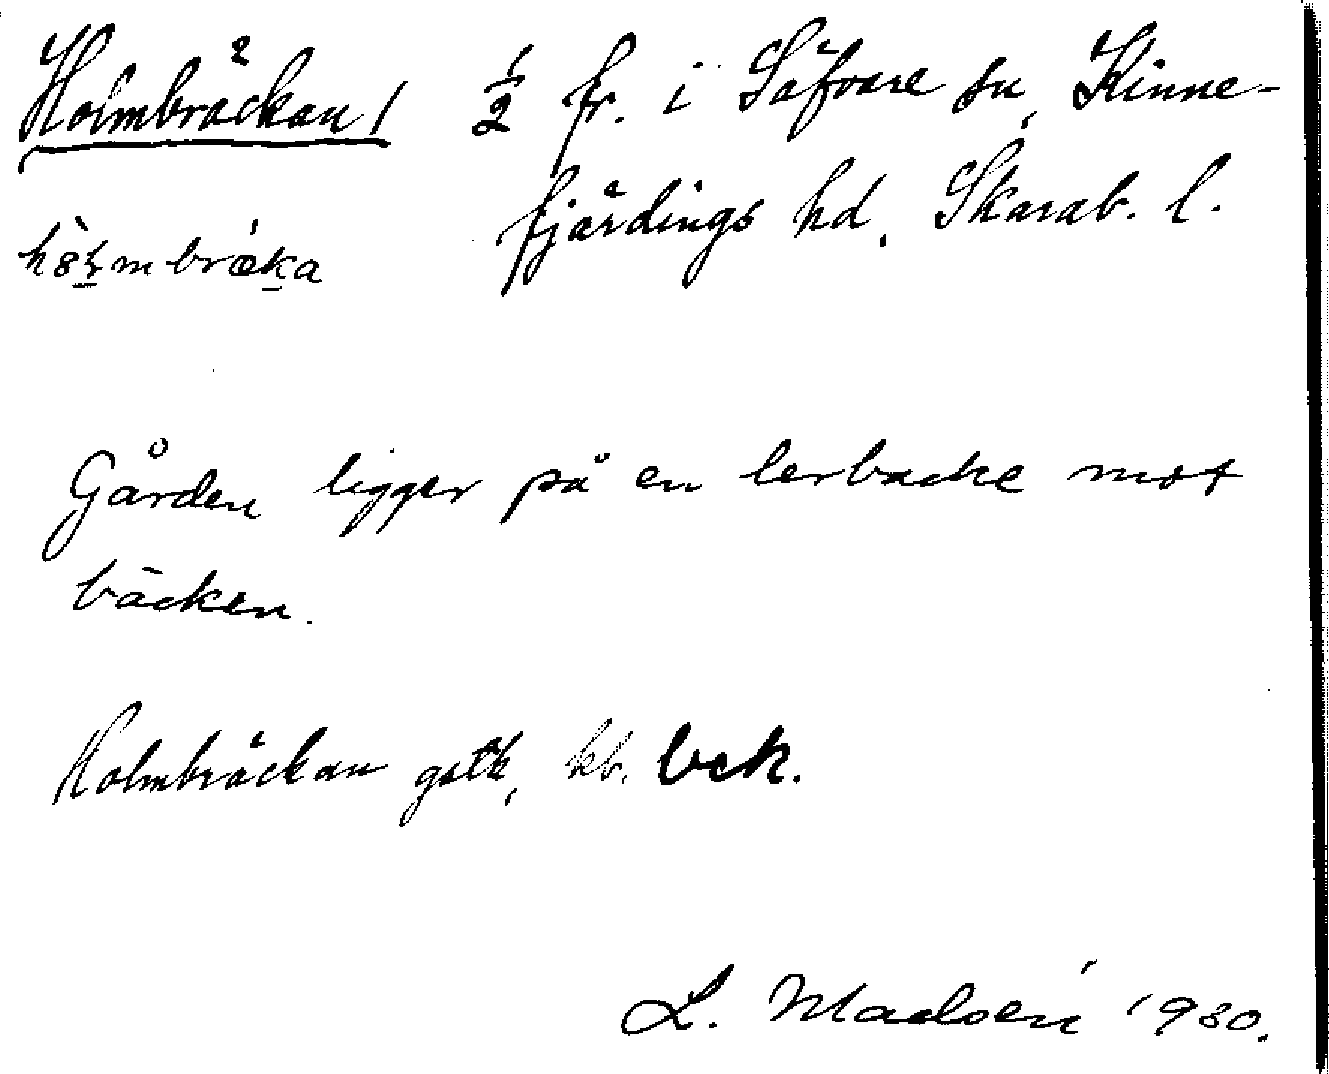 Holmbräckan / 1/2 fr. i Säfvare sn, Kinne-
fjärdings hd, Skarab. l.
Gården ligger på en lerbacke mot
bäcken.
Holmbräckan gstk, kb. bek.
L. Madsén 1930.